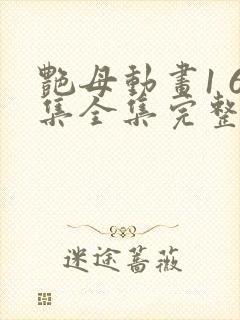 艷母動畫1 6
集全集完整
迷途蔷薇